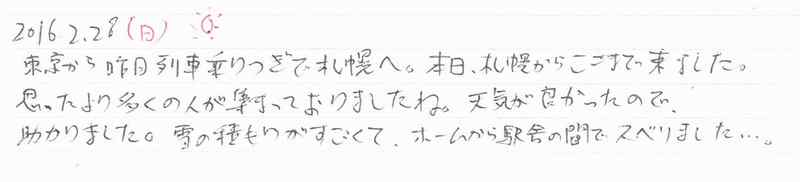 2016.2.28(日)
東京から昨日列車乗りつぎで札幌へ。本日、札幌からここまで来ました。
思ったより多くの人が集まっておりましたね。天気が良かったので、
助かりました。雪の積もりがすごくて、ホームから駅舎の間でスベりました…。